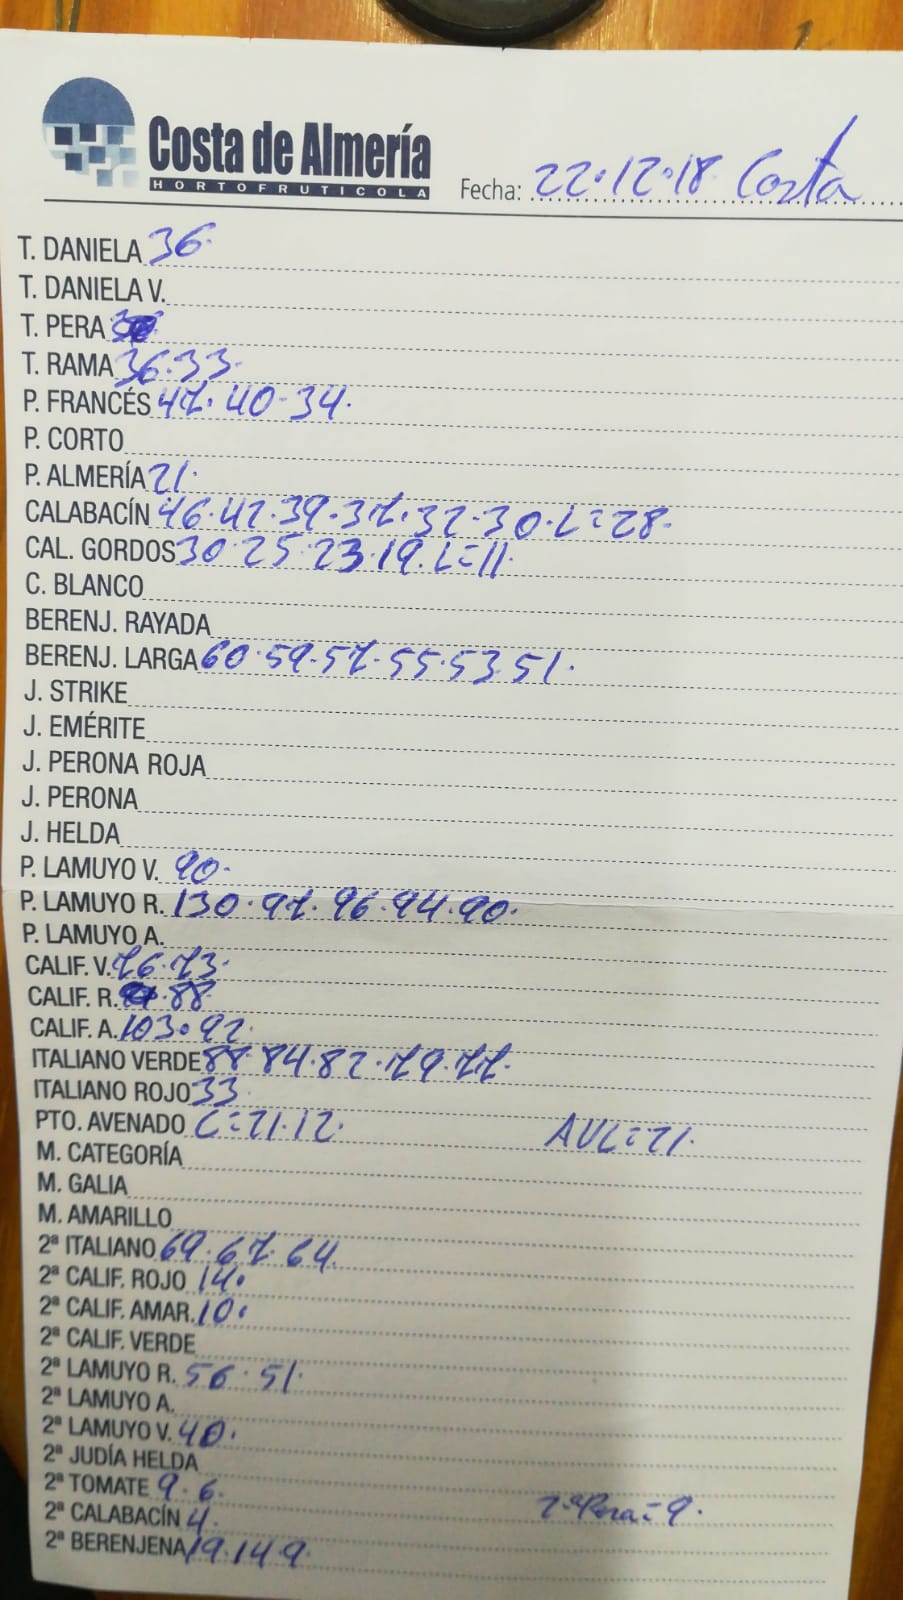 Costa de Almería
HORTOFRUTICOLA
Fecha: 22.12.18 Costa
T. DANIELA 36.
T. DANIELA V.
T. PERA
T. RAMA 36.33.
P. FRANCÉS 47.40-34.
P. CORTO
P. ALMERÍA 21.
CALABACÍN 46.42.39.37.32-30.L=28.
CAL. GORDOS 30.25.23.19.L=11.
C. BLANCO
BERENJ. RAYADA
BERENJ. LARGA 60.59.57.55.53.51.
J. STRIKE
J. EMÉRITE
J. PERONA ROJA
J. PERONA
J. HELDA
P. LAMUYO V. 90.
P. LAMUYO R. 130.97.96.94.90.
P. LAMUYO A.
CALIF. V. 76.73.
CALIF. R. .88
CALIF. A. 103.92.
ITALIANO VERDE 88.84.82.79.77.
ITALIANO ROJO 33
PTO. AVENADO C=21.12. AVL=21.
M. CATEGORÍA
M. GALIA
M. AMARILLO
2ª ITALIANO 69.67.64.
2ª CALIF. ROJO 14.
2ª CALIF. AMAR. 10.
2ª CALIF. VERDE
2ª LAMUYO R. 56.51.
2ª LAMUYO A.
2ª LAMUYO V. 40.
2ª JUDÍA HELDA
2ª TOMATE 9.6.
2ª CALABACÍN 4. 2ªPera=9.
2ª BERENJENA 19.14.9.